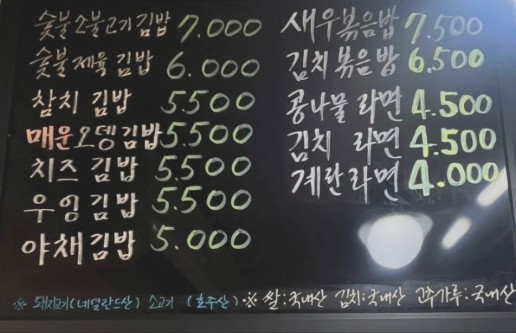 숯불소불고기김밥 7.000
숯불제육김밥 6.000
참치 김밥 5.500
매운오뎅김밥 5.500
치즈 김밥 5.500
우엉김밥 5.500
야채김밥 5.000
새우볶음밥 7.500
김치볶음밥 6.500
콩나물 라면 4.500
김치 라면 4.500
계란라면 4.000
※ 돼지고기(네덜란드산) 소고기 (호주산) ※ 쌀:국내산 김치:국내산 고추가루:국내산